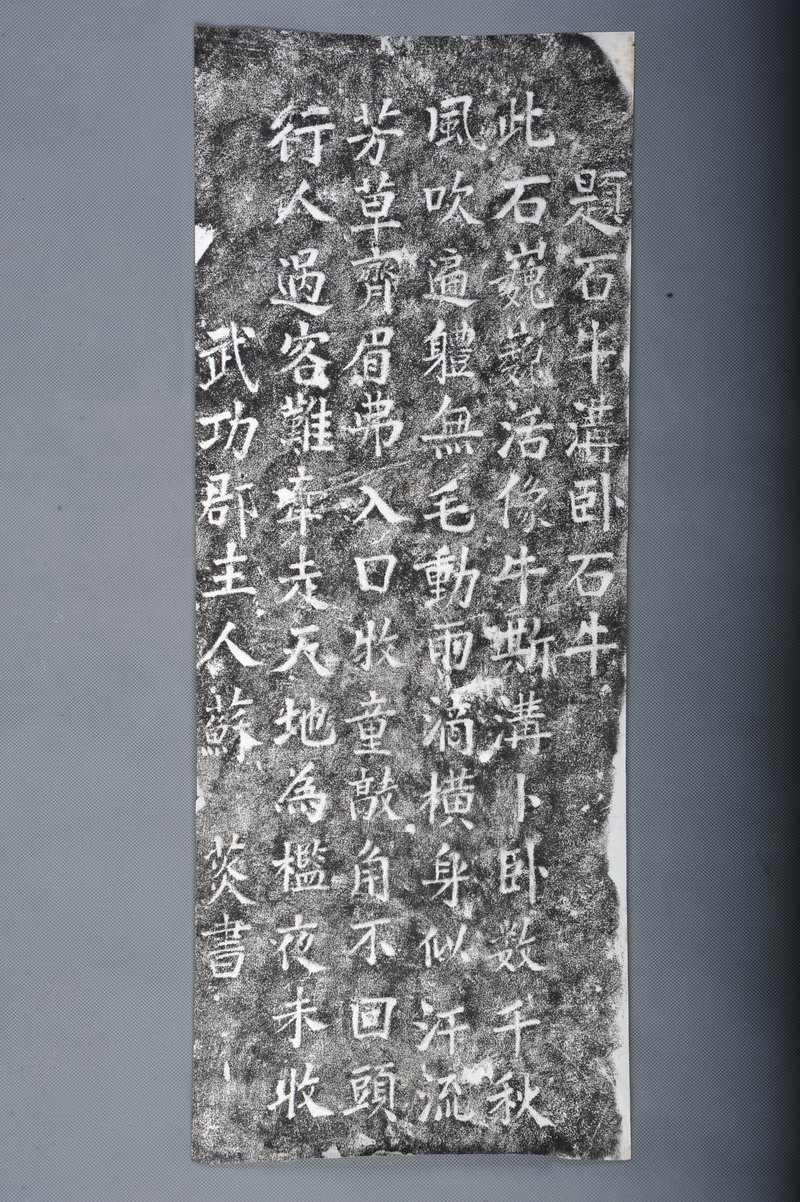 題石牛溝卧石牛
此石巍巍活像牛斯溝卜卧数千秋
風吹遍軆無毛動雨滴橫身似汗流
芳草齊眉弗入口牧童敲角不回頭
行人過客難牽走天地為檻夜未收
武功郡主人蘇 書